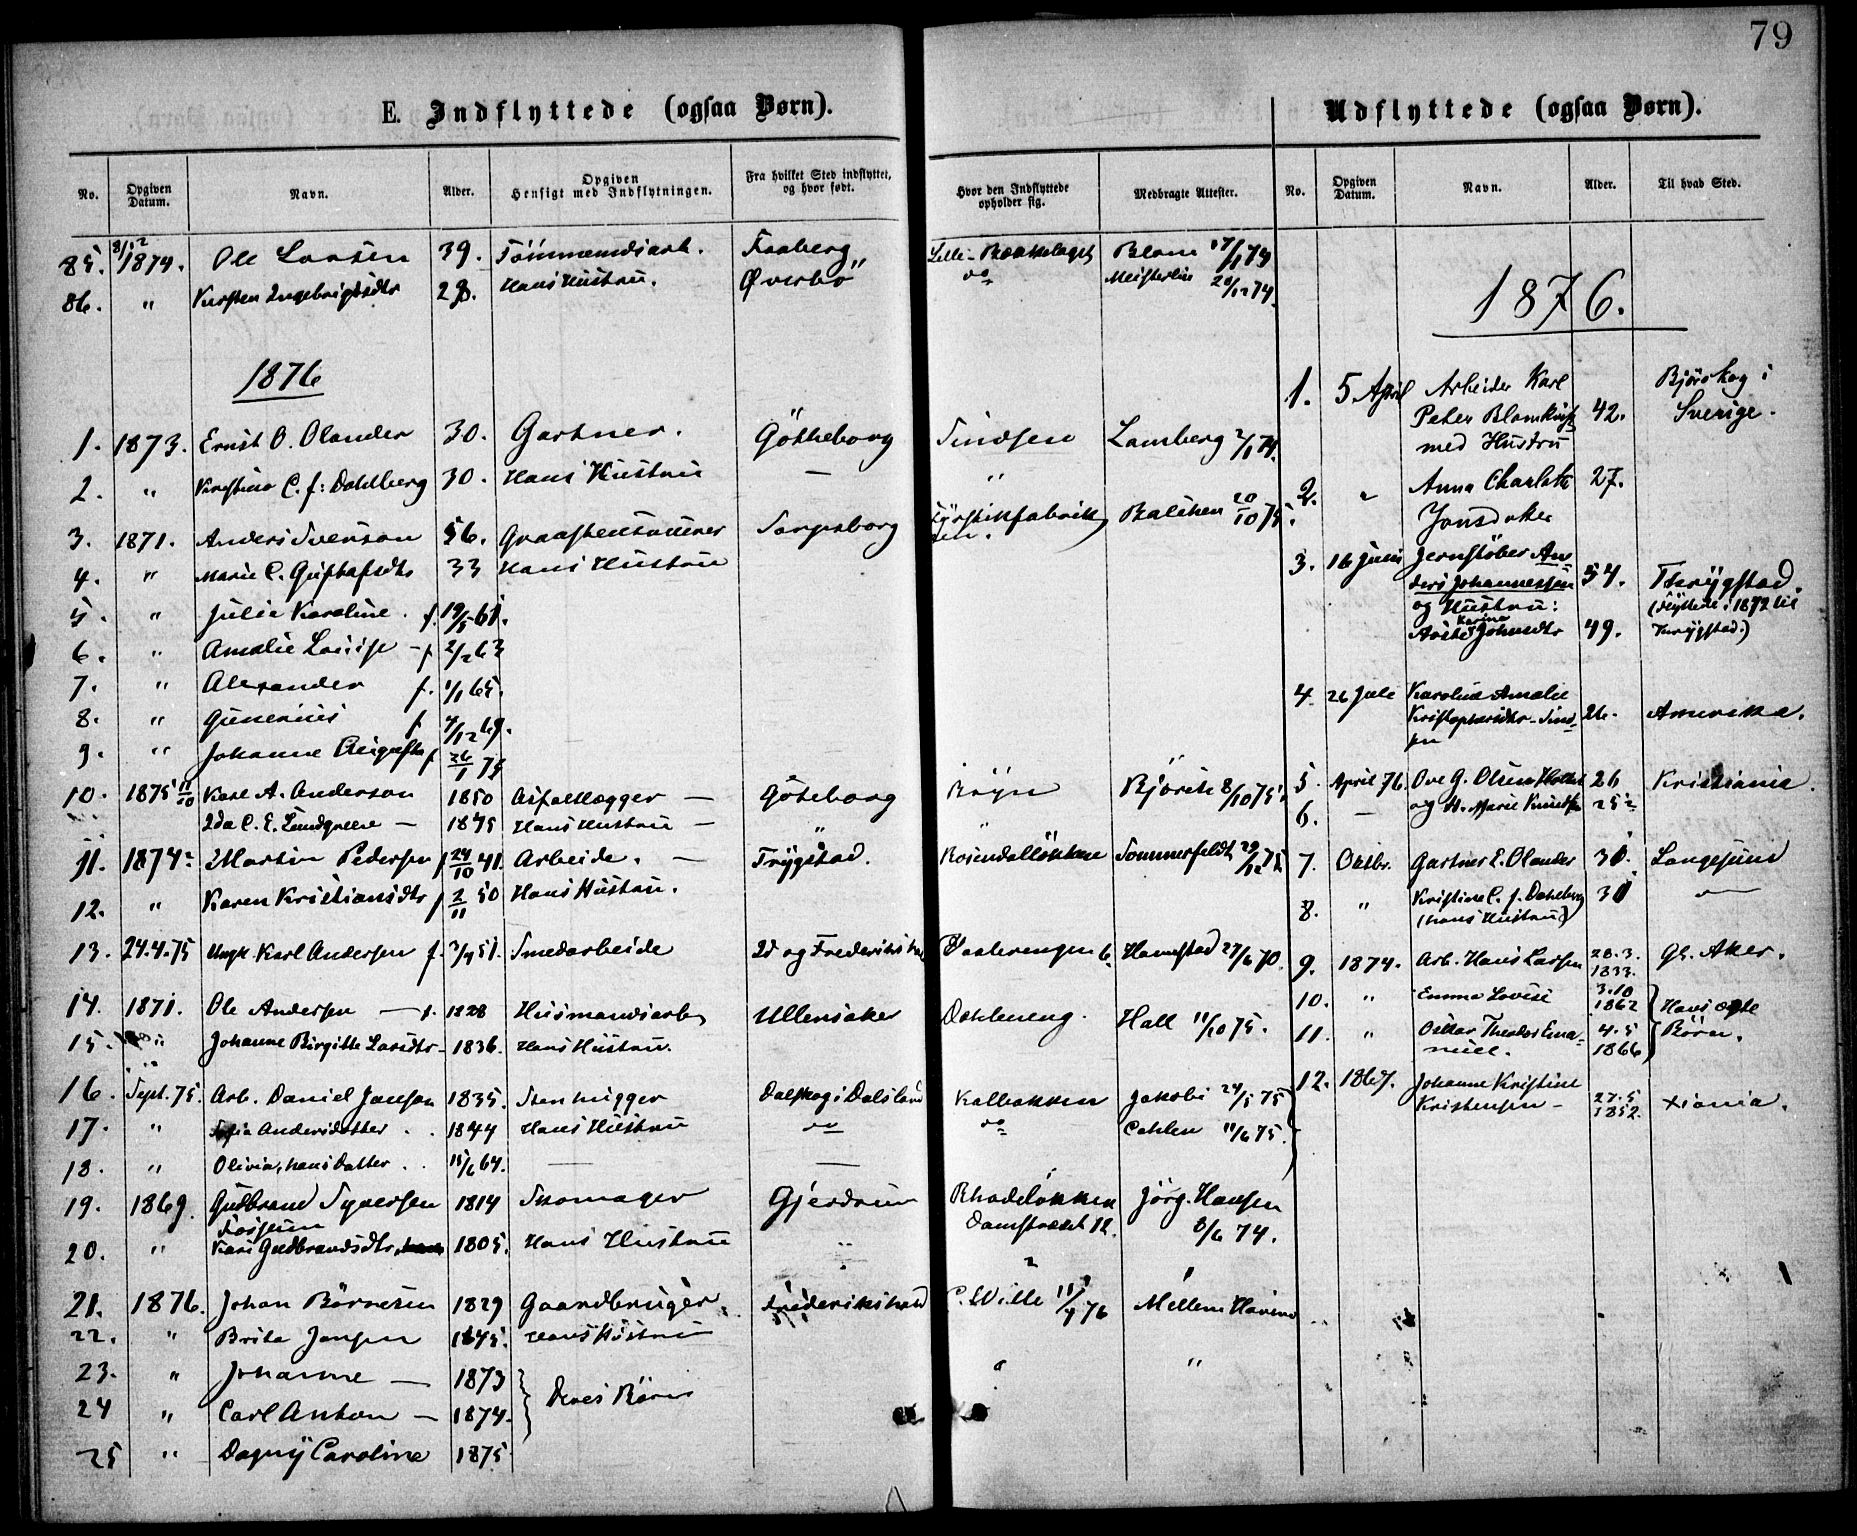 79
E. Indflyttede (ogsaa Børn).
Udflyttede (ogsaa Børn).
No. Opgiven Datum. Navn. Alder. Opgiven Hensigt med Indflytningen. Fra hvilket Sted indflyttet, og hvor født. Hvor den Indflyttede opholder sig. Medbragte Attester.
No. Opgiven Datum. Navn. Alder. Til hvad Sted.
85. 8/12 1874. Ole Larsen 39. Tömmemandsarb. Faaberg Lille Bækkelaget Blom
86. " Kirsten Ingebrigtsdtr 28. Hans Hustru. Øverbø do Meisterlin 74.
1876
1. 1873. Ernst O. Olander 30. Gartner. Götheborg Sindsen Lamberg 2/1 74.
2. " Kristine C. f: Dahlberg 30. Hans Hustru — "
3. 1871. Anders Svenson 56. Graastensmurer Sarpsborg Fyrstikfabrikken. Balchen 20/10 75.
4. " Marie C. Gustafsdtr 33 Hans Hustru
5. " Julie Karoline. f. 19/5 61.
6. " Amalie Louise f 2/2 63
7. " Alexander f. 1/1 65.
8. " Gunerius f 4/12 69.
9. " Johanne Augusta f 26/1 75
10. 1875 11/10 Karl A. Anderson 1850 Asfaltlægger — Göteborg Bryn Bjorck 8/10 75.
Ida C. E. Lundgreen — 1845 Hans Hustru — "
11. 1874. Martin Pedersen f 24/10 41. Arbeide. — Trygstad. Rosendalløkken Sommerfeldt 29/12 75
12. " Karen Kristiansdtr f 2/11 50 Hans Hustru.
13. 24.4.75 Ungk. Karl Andersen f. 3/4 51. Smedarbeide Id og Frederikshald Vaalerengen 6. Hamstad 27/6 70.
14. 1871. Ole Andersen — f. 1828 Husmandsarb. Ullensaker Dahleneng. Hall 11/10 75.
15. " Johanne Birgitte Larsdtr 1836. Hans Hustru.
16. Sept. 75. Arb. Daniel Janson 1835. Stenhugger Dalskog i Dalsland Kalbakken Jakobi 24/5 75
17. " Sofia Andersdotter . . 1844 Hans Hustru do do Cahlen 11/6 75.
18. " Olivia, hans Datter . . 15/6 64. — —
19. 1869. Gudbrand Syversen Fossum 1814 Skomager Gjerdrum Rhodeløkken Damstrædet 12. Jörg. Hansen 8/6 74.
20. " Kari Gudbrandsdtr. 1805. Hans Hustru "
21. 1876. Johan Börresen 1829 Gaardbruger. Frederikshald C. Wille 76 Mellem Havnen
22. " Brita Jansen 1845. Hans Hustru
23. " Johanne — 1873 " "
24 " Carl Anton — 1874. Deres Børn
25 " Dagny Caroline 1875.
1876.
1. 5 April Arbeider Karl Bjørskog i
Peter Blomkvist 42. Sverige.
med Hustru
2. " Anna Charlotte 27.
Jonsdoter
3. 16 Juni Jernstøber An-
ders Johannessen 54. Thrygstad.
og Hustru: (flyttede i 1872 til
Karine Johnsdtr 49. Thrygstad.)
4. 26 Juli Karoline Amalie
Kristophersdtr. Sind-
sen 26. Amerika.
5. April 76. Ove G. Olsen 26 Kristiania.
6. — og H. Marie 25
7. Oktbr. Gartner E. Olander 30. Langesund
8. " Kristine C. f. Dahlberg 30 —
(hans Hustru)
9. 1874. Arb. Hans Larsen 28.3. 1833. Gl. Aker.
10. " Emma Lovise 3.10 1862 Hans ægte
11. " Oskar Theodor Ema-
nuel. 4.5 1866 Børn.
12. 1867. Johanne Kristine
Kristensen — 27.5 1852. Xiania.